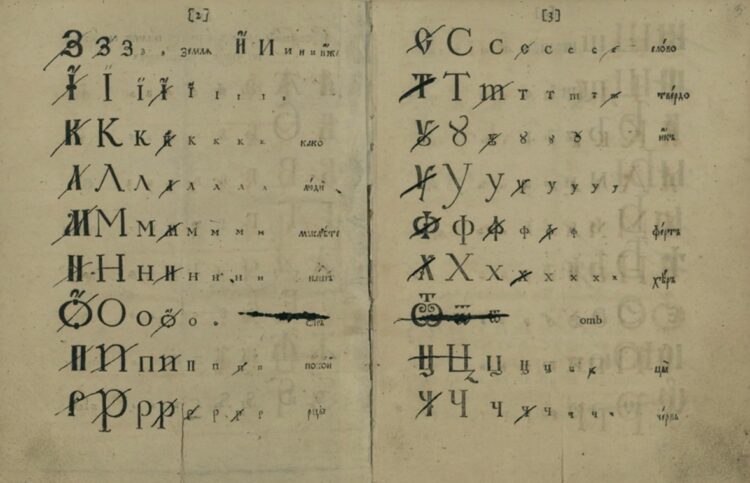 [2]
З З З з з з землѧ И̃ И и и и и̃же
І̃ Ї ї і і̃ і̃ і і і
К К к к к к к к како
Л Л л л л л л л люди
М М м м м м м мыслѣте
Н Н н н н н н н нашъ
Ѻ О о о о
П П п п п п п п покой
Р Р р р р р р р рцы
[3]
С С с с с с с с сло́во
Т Т т т т т т т тве́рдо
Ꙋ Ꙋ ꙋ ꙋ ꙋ ꙋ ꙋ икъ
У У у у у у у у
Ф ф ф ф ф ф фе́ртъ
Х Х х х х х х х хѣръ
Ѿ ѿ ѿ отъ
Ц Ц ц ц ц ц ц цы
Ч Ч ч ч ч ч ч ч че́рвь